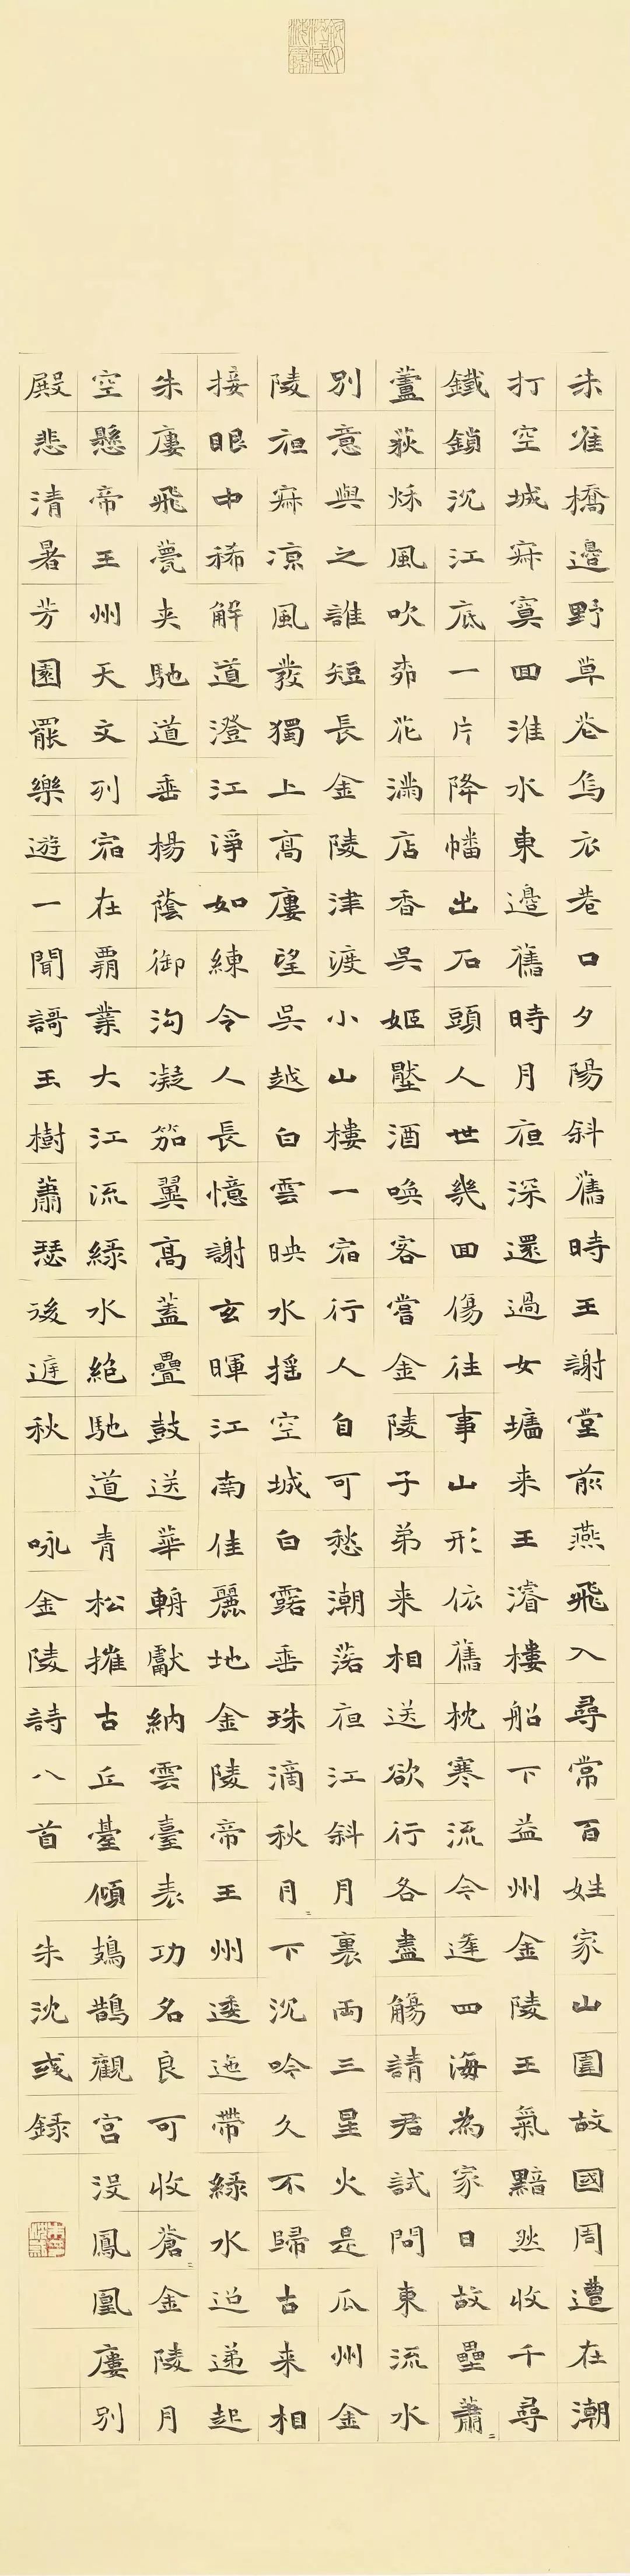 朱雀橋邊野草花烏衣巷口夕陽斜舊時王謝堂前燕飛入尋常百姓家山圍故國周遭在潮
打空城寂寞回淮水東邊舊時月夜深還過女墻來王濬樓船下益州金陵王氣黯然收千尋
鐵鎖沈江底一片降幡出石頭人世幾回傷往事山形依舊枕寒流今逢四海為家日故壘蕭〻
蘆荻秋風吹柳花滿店香吳姬壓酒喚客嘗金陵子弟来相送欲行各盡觴請君試問東流水
別意與之誰短長金陵津渡小山樓一宿行人自可愁潮落夜江斜月裏兩三星火是瓜州金
陵夜寂涼風發獨上高樓望吳越白雲映水搖空城白露垂珠滴秋月〻下沈吟久不歸古来相
接眼中稀解道澄江淨如練令人長憶謝玄暉江南佳麗地金陵帝王州逶迤帶綠水迢遞起
朱樓飛甍夾馳道垂楊蔭御溝凝笳翼高蓋疊鼓送華輈獻納雲臺表功名良可收蒼〻金陵月
空懸帝王州天文列宿在霸業大江流綠水絕馳道青松摧古丘臺傾鳷鵲觀宮沒鳳凰樓別
殿悲清暑芳園罷樂遊一聞謌玉樹蕭瑟後庭秋 咏金陵詩八首 朱沈彧錄